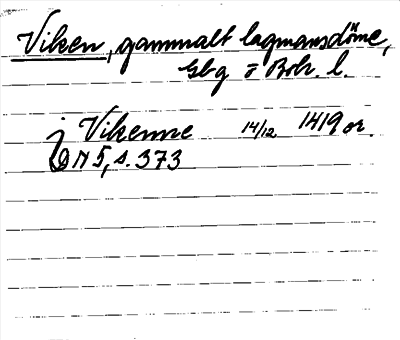 Viken, gammalt lagmansdöme,
Gbg o Boh. l.
j Vikenne 14/12 1419 or.
DN 5, s. 373